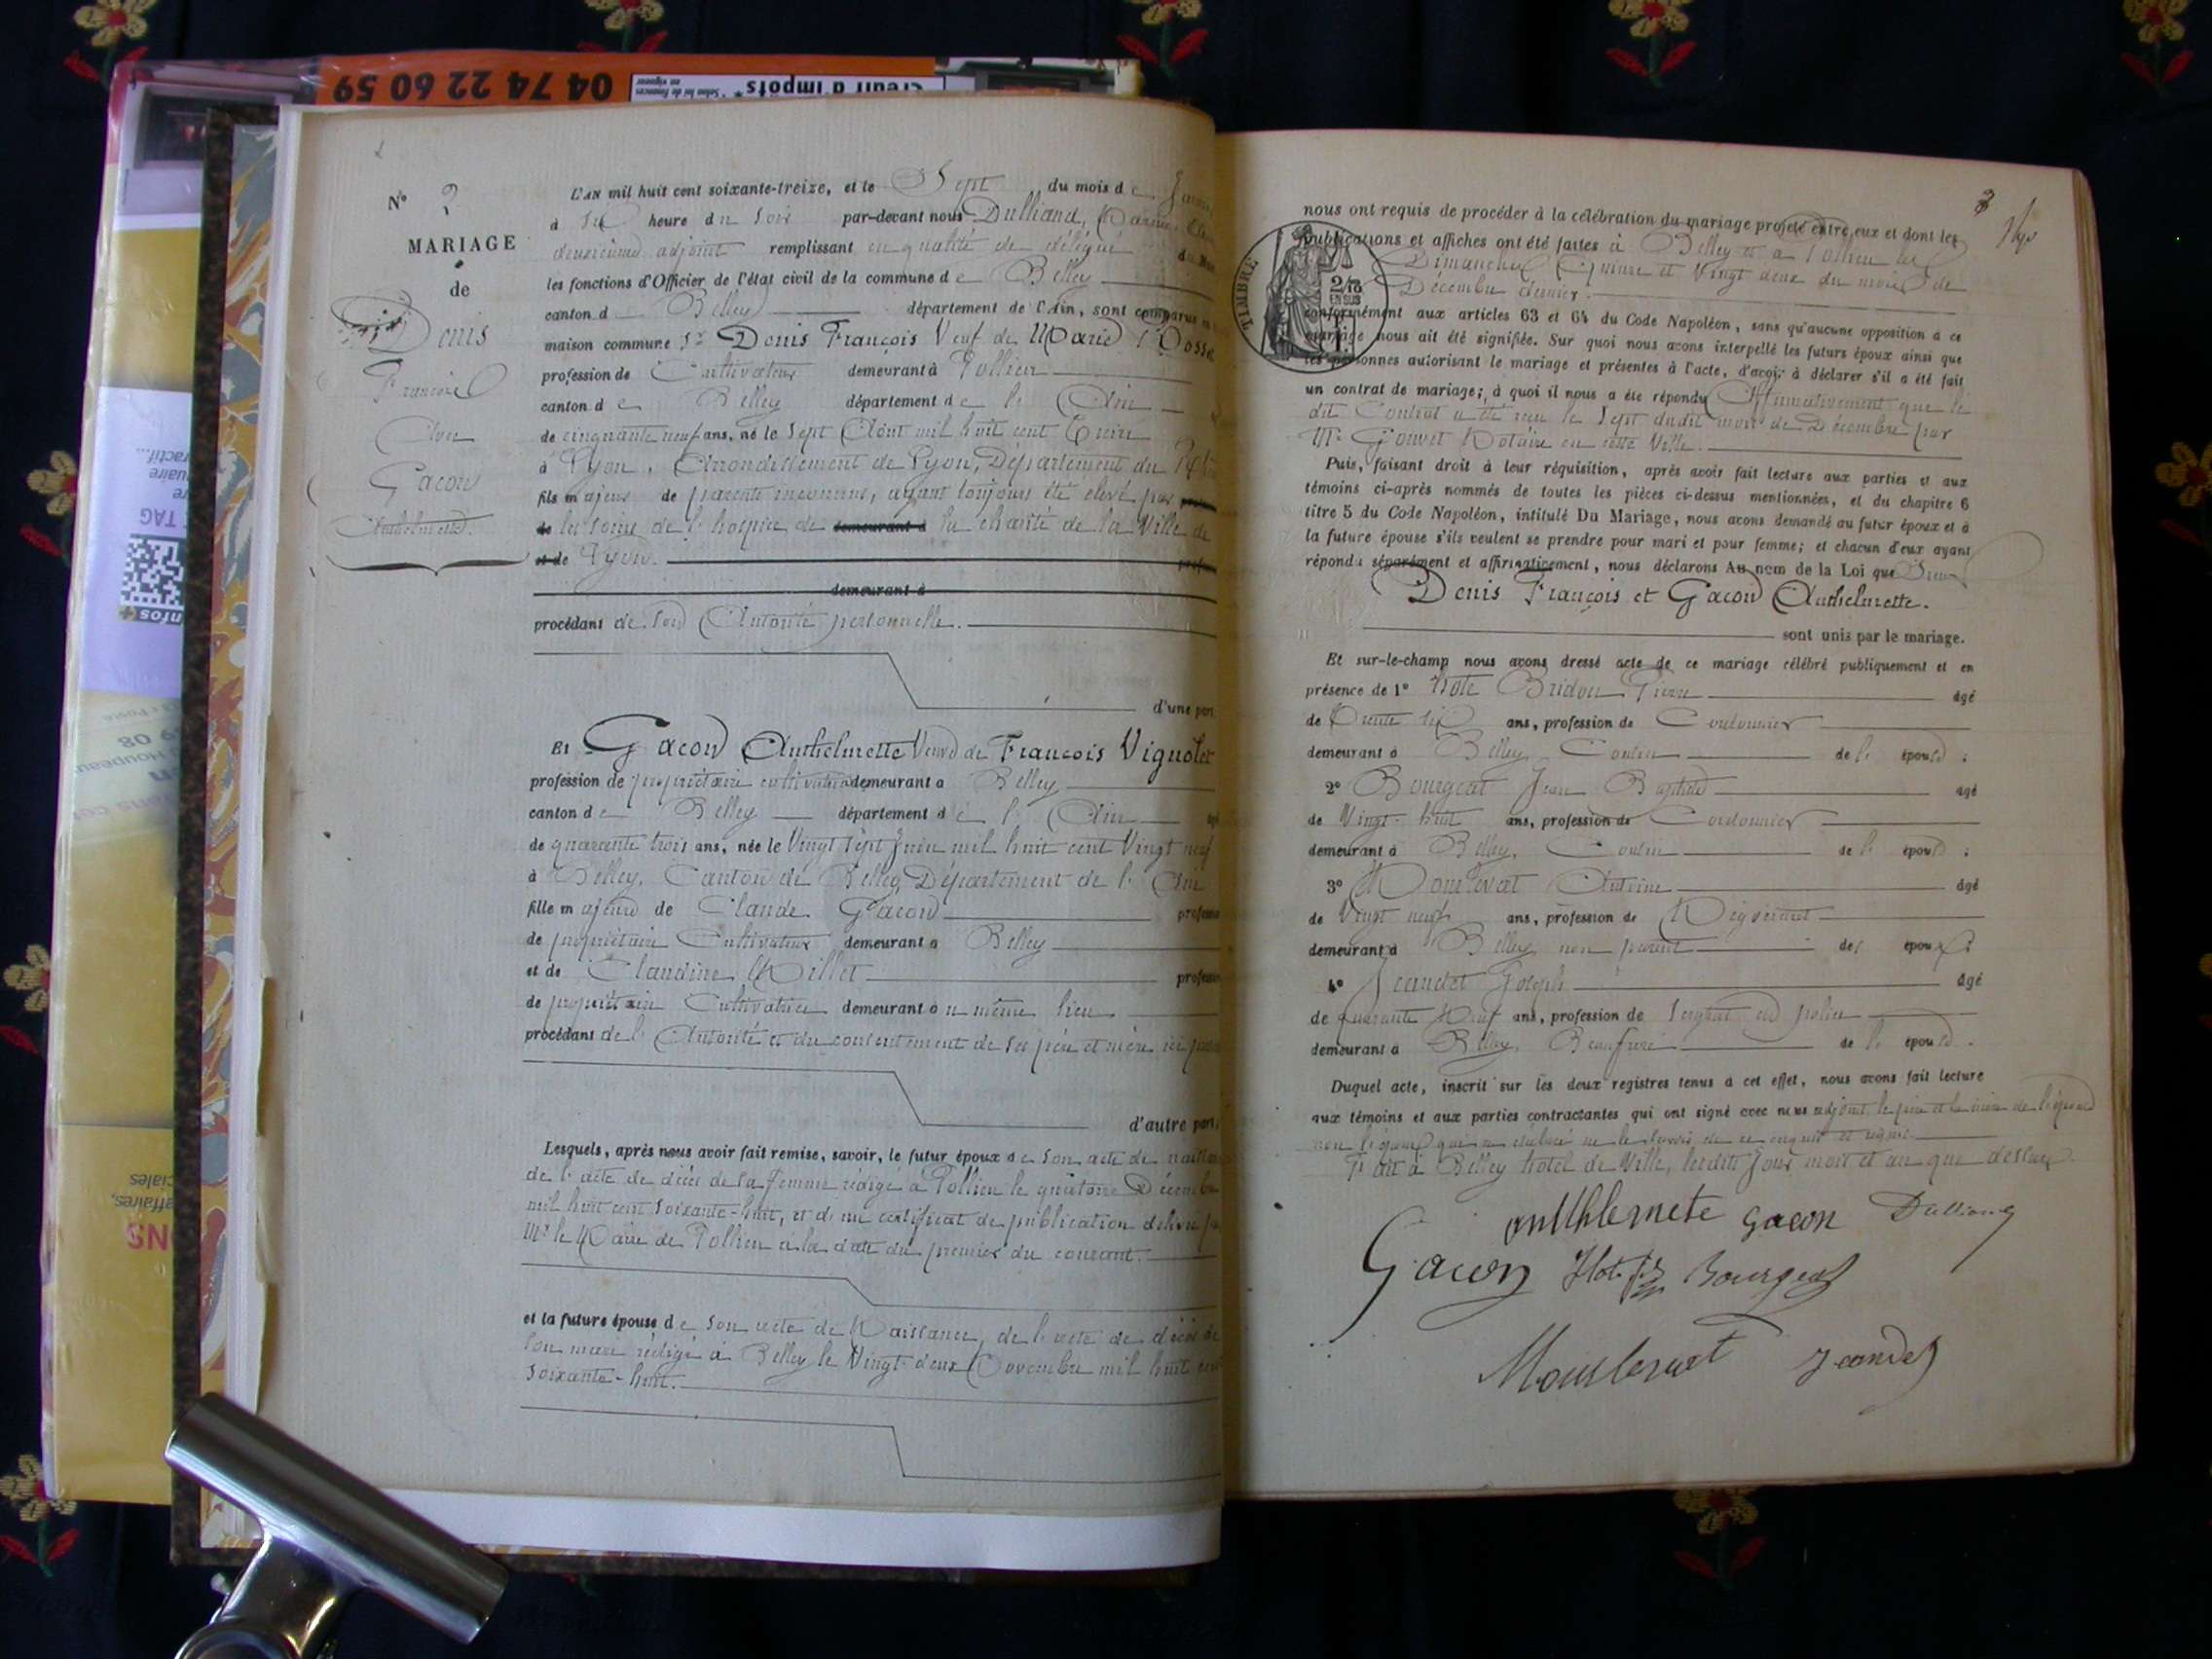 04 74 22 60 59
Crédit d'impôts*
Selon loi de Finances
en vigueur
N° 2
MARIAGE
de
Denis
François
Avec
Gacon
Anthelmette.
L'AN mil huit cent soixante-treize, et le Sept du mois de
à Six heure du soir par-devant nous Dulliand,
deuxième adjoint remplissant en qualité de délégué
les fonctions d'Officier de l'état civil de la commune de Belley
canton d Belley département de l'Ain, sont comparus
maison commune Sr Denis François Veuf de Marie
profession de Cultivateur demeurant à Pollieu
canton de Belley département de l'Ain
de cinquante neuf ans, né le Sept Août mil huit cent Treize
à Lyon, Arrondissement de Lyon, Département du
fils majeur de parents inconnus, ayant toujours été élevé par
de les soins de l'hospice de demeurant à la charité de la Ville de
et de Lyon.
demeurant à
procédant de son Autorité personnelle.
d'une part
Et Gacon Anthelmette Veuve de François Vignolet
profession de propriétaire cultivatrice demeurant à Belley
canton de Belley département de l'Ain
de quarante trois ans, née le Vingt Sept Juin mil huit cent Vingt neuf
à Belley, Canton de Belley, Département de l'Ain
fille majeure de Claude Gacon
de propriétaire Cultivateur demeurant à Belley
et de Claudine Millet
de propriétaire Cultivatrice demeurant au même lieu
procédant de l'Autorité et du consentement de ses père et mère ici
d'autre part.
Lesquels, après nous avoir fait remise, savoir, le futur époux de son acte de
de l'acte de décès de sa femme rédigé à Pollieu le quatorze Décembre
mil huit cent soixante-huit, et d'un certificat de publication délivré
Mr le Maire de Pollieu à la date du premier du courant.
et la future épouse de son acte de Naissance, de l'acte de décès de
son mari rédigé à Belley le Vingt-deux Novembre mil huit cent
soixante-huit.
3
nous ont requis de procéder à la célébration du mariage projeté entre eux et dont les
publications et affiches ont été faites à Belley et à Pollieu les
Dimanches Quinze et Vingt deux du mois de
Décembre dernier.
TIMBRE
2/10
EN SUS
conformément aux articles 63 et 64 du Code Napoléon, sans qu'aucune opposition à ce
mariage nous ait été signifiée. Sur quoi nous avons interpellé les futurs époux ainsi que
les personnes autorisant le mariage et présentes à l'acte, d'avoir à déclarer s'il a été fait
un contrat de mariage; à quoi il nous a été répondu Affirmativement que le
dit Contrat a été reçu le Sept dudit mois de Décembre par
Me Gouvet Notaire en cette Ville.
Puis, faisant droit à leur réquisition, après avoir fait lecture aux parties et aux
témoins ci-après nommés de toutes les pièces ci-dessus mentionnées, et du chapitre 6
titre 5 du Code Napoléon, intitulé Du Mariage, nous avons demandé au futur époux et à
la future épouse s'ils veulent se prendre pour mari et pour femme; et chacun d'eux ayant
répondu séparément et affirmativement, nous déclarons Au nom de la Loi que
Denis François et Gacon Anthelmette.
sont unis par le mariage.
Et sur-le-champ nous avons dressé acte de ce mariage célébré publiquement et en
présence de 1° Pierre âgé
de Trente six ans, profession de Cordonnier
demeurant à Belley, Cousin de l' épouse ;
2° Bourgeat Jean Baptiste âgé
de Vingt-huit ans, profession de Cordonnier
demeurant à Belley, Cousin de l' épouse ;
3° Antoine âgé
de Vingt neuf ans, profession de Négociant
demeurant à Belley non parent des époux ;
4° Jeandet Joseph âgé
de quarante Neuf ans, profession de Sergent de police
demeurant à Belley, Beaufrère de l' épouse.
Duquel acte, inscrit sur les deux registres tenus à cet effet, nous avons fait lecture
aux témoins et aux parties contractantes qui ont signé avec nous adjoint, le père et la mère de l'épouse
non l'époux qui a déclaré ne le savoir de ce enquis et requis.
Fait à Belley hôtel de Ville, lesdits Jour mois et an que dessus.
anthlemete gacon Dulliand
Gacon Bourgeat
Jeandet